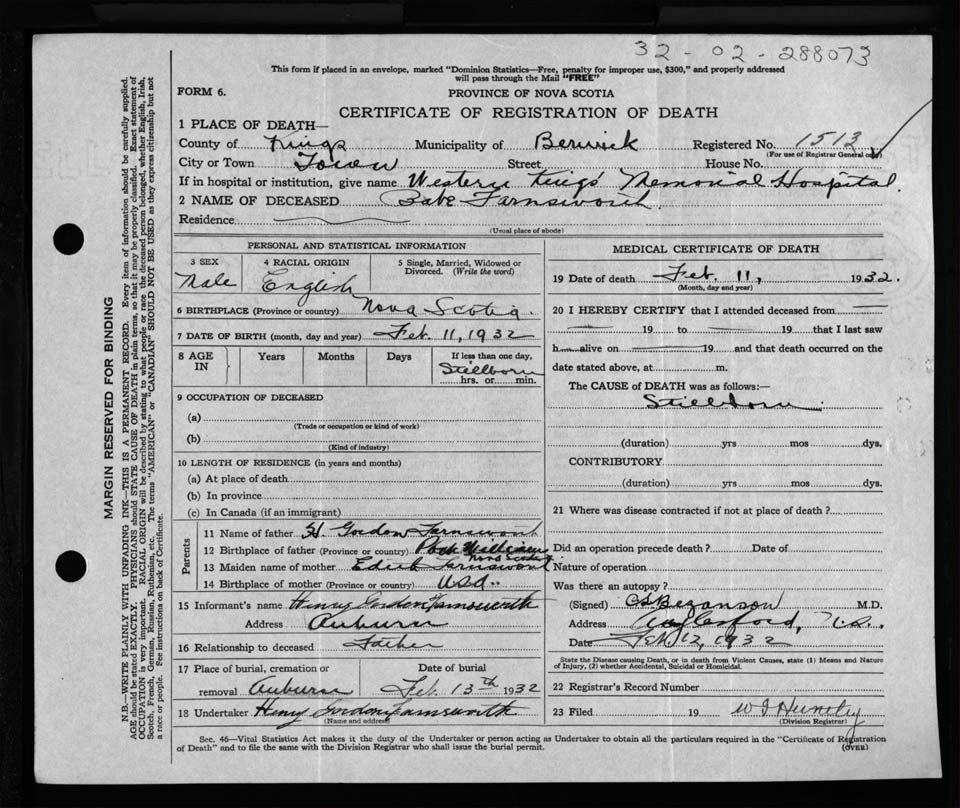 32-02-288073
This form if placed in an envelope, marked "Dominion Statistics—Free, penalty for improper use, $300," and properly addressed
will pass through the Mail "FREE"
FORM 6. PROVINCE OF NOVA SCOTIA
CERTIFICATE OF REGISTRATION OF DEATH
1 PLACE OF DEATH—
County of Kings Municipality of Berwick Registered No. 1513
(For use of Registrar General only)
City or Town Town Street House No.
If in hospital or institution, give name Western Kings' Memorial Hospital.
2 NAME OF DECEASED Babe Farnsworth
Residence
(Usual place of abode)
PERSONAL AND STATISTICAL INFORMATION
3 SEX 4 RACIAL ORIGIN 5 Single, Married, Widowed or
Divorced. (Write the word)
Male English
6 BIRTHPLACE (Province or country) Nova Scotia
7 DATE OF BIRTH (month, day and year) Feb. 11, 1932
8 AGE IN Years Months Days If less than one day,
Stillborn
hrs. or min.
9 OCCUPATION OF DECEASED
(a)
(Trade or occupation or kind of work)
(b)
(Kind of industry)
10 LENGTH OF RESIDENCE (in years and months)
(a) At place of death
(b) In province
(c) In Canada (if an immigrant)
Parents
11 Name of father H. Gordon Farnsworth
12 Birthplace of father (Province or country) Port Williams
Nova Scotia
13 Maiden name of mother Edith Farnsworth
14 Birthplace of mother (Province or country) USA.
15 Informant's name Henry Gordon Farnsworth
Address Auburn
16 Relationship to deceased Father
17 Place of burial, cremation or Date of burial
removal Auburn Feb. 13th 1932
18 Undertaker Henry Gordon Farnsworth
(Name and address)
MEDICAL CERTIFICATE OF DEATH
19 Date of death Feb. 11, 1932.
(Month, day and year)
20 I HEREBY CERTIFY that I attended deceased from
19 to 19 that I last saw
h alive on 19 and that death occurred on the
date stated above, at m.
The CAUSE of DEATH was as follows:—
Stillborn
(duration) yrs mos dys.
CONTRIBUTORY
(duration) yrs mos dys.
21 Where was disease contracted if not at place of death?
Did an operation precede death? Date of
Nature of operation
Was there an autopsy?
(Signed) M.D.
Address N.S.
Date Feb 12, 1932
State the Disease causing Death, or in death from Violent Causes, state (1) Means and Nature
of Injury, (2) whether Accidental, Suicidal or Homicidal.
22 Registrar's Record Number
23 Filed 19
(Division Registrar)
Sec. 46—Vital Statistics Act makes it the duty of the Undertaker or person acting as Undertaker to obtain all the particulars required in the "Certificate of Registration
of Death" and to file the same with the Division Registrar who shall issue the burial permit. (OVER)
MARGIN RESERVED FOR BINDING
N.B.—WRITE PLAINLY WITH UNFADING INK—THIS IS A PERMANENT RECORD. Every item of information should be carefully supplied.
AGE should be stated EXACTLY. PHYSICIANS should STATE CAUSE OF DEATH in plain terms, so that it may be properly classified. Exact statement of
OCCUPATION is very important. RACIAL ORIGIN will be described by stating to what people or race the deceased person belonged, whether English, Irish,
Scotch, French, German, Russian, Ruthenian, etc. The terms "AMERICAN" or "CANADIAN" SHOULD NOT BE USED as they express citizenship but not
a race or people. See instructions on back of Certificate.